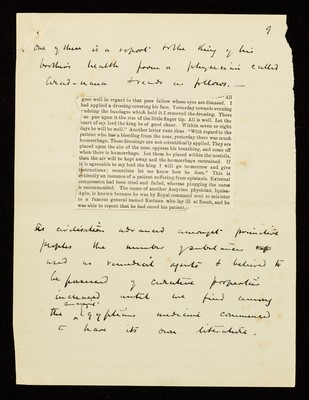 9
one of these is a report to the King of his
brother's health from a physician called
Arad-nana & reads as follows. —
All
goes well in regard to that poor fellow whose eyes are diseased. I
had applied a dressing covering his face. Yesterday towards evening
undoing the bandages which held it I removed the dressing. There
was pus upon it the size of the little finger tip. All is well. Let the
heart of my lord the king be of good cheer. Within seven or eight
days he will be well." Another letter runs thus: "With regard to the
patient who has a bleeding from the nose, yesterday there was much
hæmorrhage. Those dressings are not scientifically applied. They are
placed upon the alæ of the nose, oppress his breathing, and come off
when there is hæmorrhage. Let them be placed within the nostrils,
then the air will be kept away and the hæmorrhage restrained. If
it is agreeable to my lord the king I will go to-morrow and give
instructions; meantime let me know how he does." This is
evidently an instance of a patient suffering from epistaxis. External
compression had been tried and failed, whereas plugging the nares
is recommended. The name of another Assyrian physician, Iqasa-
aplu, is known because he was by Royal command sent to minister
to a famous general named Kudurru who lay ill at Erech, and he
was able to report that he had cured his patient.
As civilisation advanced amongst primitive
peoples the number of substances
used as remedial agents & believed to
be possessed of curative properties
increased until we find among
amongst
the Egyptians medicine commenced
to have its own literature.